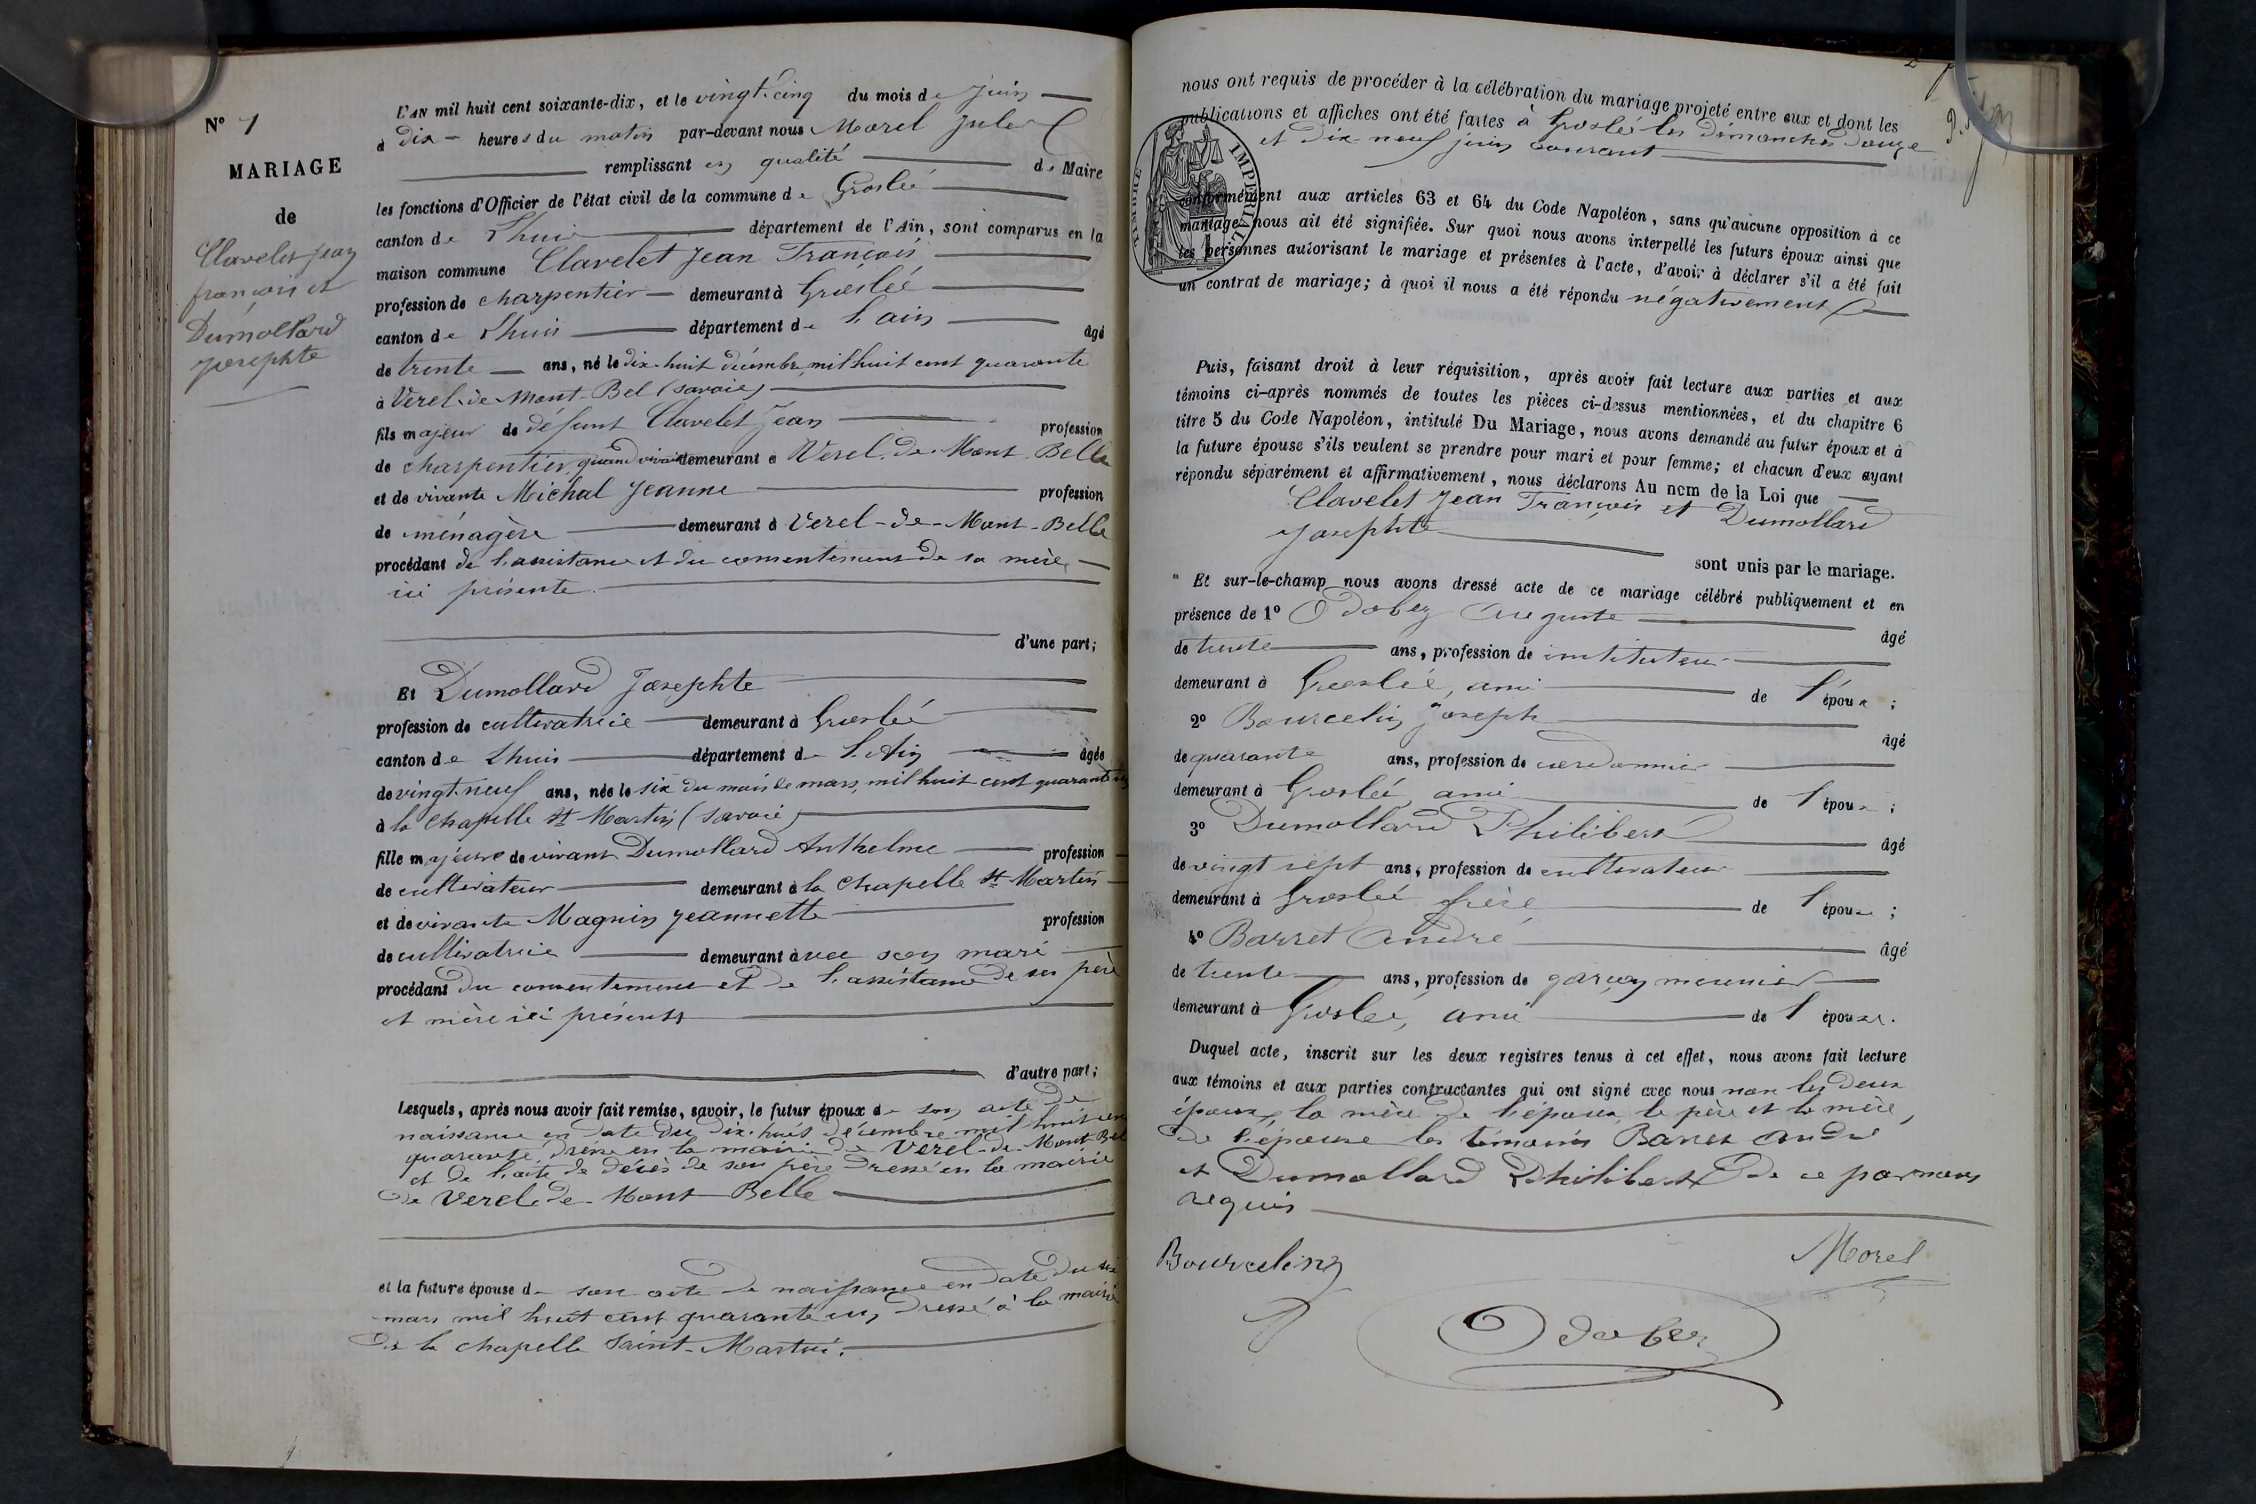 N° 7
MARIAGE
de
Clavelet Jean
françois et
Dumollard
Josephte
L'AN mil huit cent soixante-dix, et le vingt-cinq du mois de Juin
à dix heures du matin par-devant nous Morel Jules
remplissant en qualité de Maire
les fonctions d'Officier de l'état civil de la commune de Groslée
canton de Lhuis département de l'Ain, sont comparus en la
maison commune Clavelet Jean François
profession de charpentier demeurant à Groslée
canton de Lhuis département de l'ain âgé
de trente ans, né le dix-huit décembre mil huit cent quarante
à Verel-de-Mont-Bel (savoie)
fils majeur de défunt Clavelet Jean profession
de charpentier, quand vivait demeurant à Verel-de-Mont-Belle
et de vivante Michal Jeanne profession
de ménagère demeurant à Verel-de-Mont-Belle
procédant de l'assistance et du consentement de sa mère
ici présente.
d'une part;
Et Dumollard Josephte
profession de cultivatrice demeurant à Groslée
canton de Lhuis département de l'Ain âgée
de vingt-neuf ans, née le six du mois de mars, mil huit cent quarante un
à la Chapelle St Martin (savoie)
fille majeure de vivant Dumollard Anthelme profession
de cultivateur demeurant à la Chapelle St Martin
et de vivante Magnin Jeannette profession
de cultivatrice demeurant avec son mari
procédant du consentement et de l'assistance de ses père
et mère ici présents
d'autre part;
Lesquels, après nous avoir fait remise, savoir, le futur époux de son acte de
naissance en date du dix-huit décembre mil huit cent
quarante, dressé en la mairie de Verel-de-Mont-Bel
et de l'acte de décès de son père dressé en la mairie
de Verel-de-Mont-Belle
et la future épouse de son acte de naissance en date du six
mars mil huit cent quarante un, dressé à la mairie
de la chapelle Saint-Martin.
nous ont requis de procéder à la célébration du mariage projeté entre eux et dont les
publications et affiches ont été faites à Groslée les dimanches douze
et dix-neuf juin courant
TIMBRE IMPERIAL
conformément aux articles 63 et 64 du Code Napoléon, sans qu'aucune opposition à ce
mariage nous ait été signifiée. Sur quoi nous avons interpellé les futurs époux ainsi que
les personnes autorisant le mariage et présentes à l'acte, d'avoir à déclarer s'il a été fait
un contrat de mariage; à quoi il nous a été répondu négativement
Puis, faisant droit à leur réquisition, après avoir fait lecture aux parties et aux
témoins ci-après nommés de toutes les pièces ci-dessus mentionnées, et du chapitre 6
titre 5 du Code Napoléon, intitulé Du Mariage, nous avons demandé au futur époux et à
la future épouse s'ils veulent se prendre pour mari et pour femme; et chacun d'eux ayant
répondu séparément et affirmativement, nous déclarons Au nom de la Loi que
Clavelet Jean François et Dumollard
Josephte
sont unis par le mariage.
Et sur-le-champ nous avons dressé acte de ce mariage célébré publiquement et en
présence de 1° Odobez Auguste âgé
de trente ans, profession de instituteur
demeurant à Groslée, ami de l'époux ;
2° Bourcelin Joseph âgé
de quarante ans, profession de cordonnier
demeurant à Groslée ami de l'époux ;
3° Dumollard Philibert âgé
de vingt sept ans, profession de cultivateur
demeurant à Groslée frère de l'épouse ;
4° Barret André âgé
de trente ans, profession de garçon meunier
demeurant à Groslée, ami de l'épouse.
Duquel acte, inscrit sur les deux registres tenus à cet effet, nous avons fait lecture
aux témoins et aux parties contractantes qui ont signé avec nous non les deux
époux, la mère de l'époux, le père et la mère,
de l'épouse les témoins Barret André
et Dumollard Philibert de ce par nous
requis
Bourcelin
Morel
Odobez